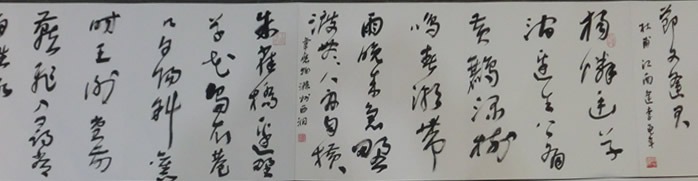 節又逢君
杜甫江南逢李龟年
獨憐幽草
澗邊生上有
黄鸝深樹
鳴春潮带
雨晚来急野
渡無人舟自横
韋應物滁州西澗
朱雀橋邊野
草花烏衣巷
口夕陽斜舊
時王謝堂前
燕飛入尋常